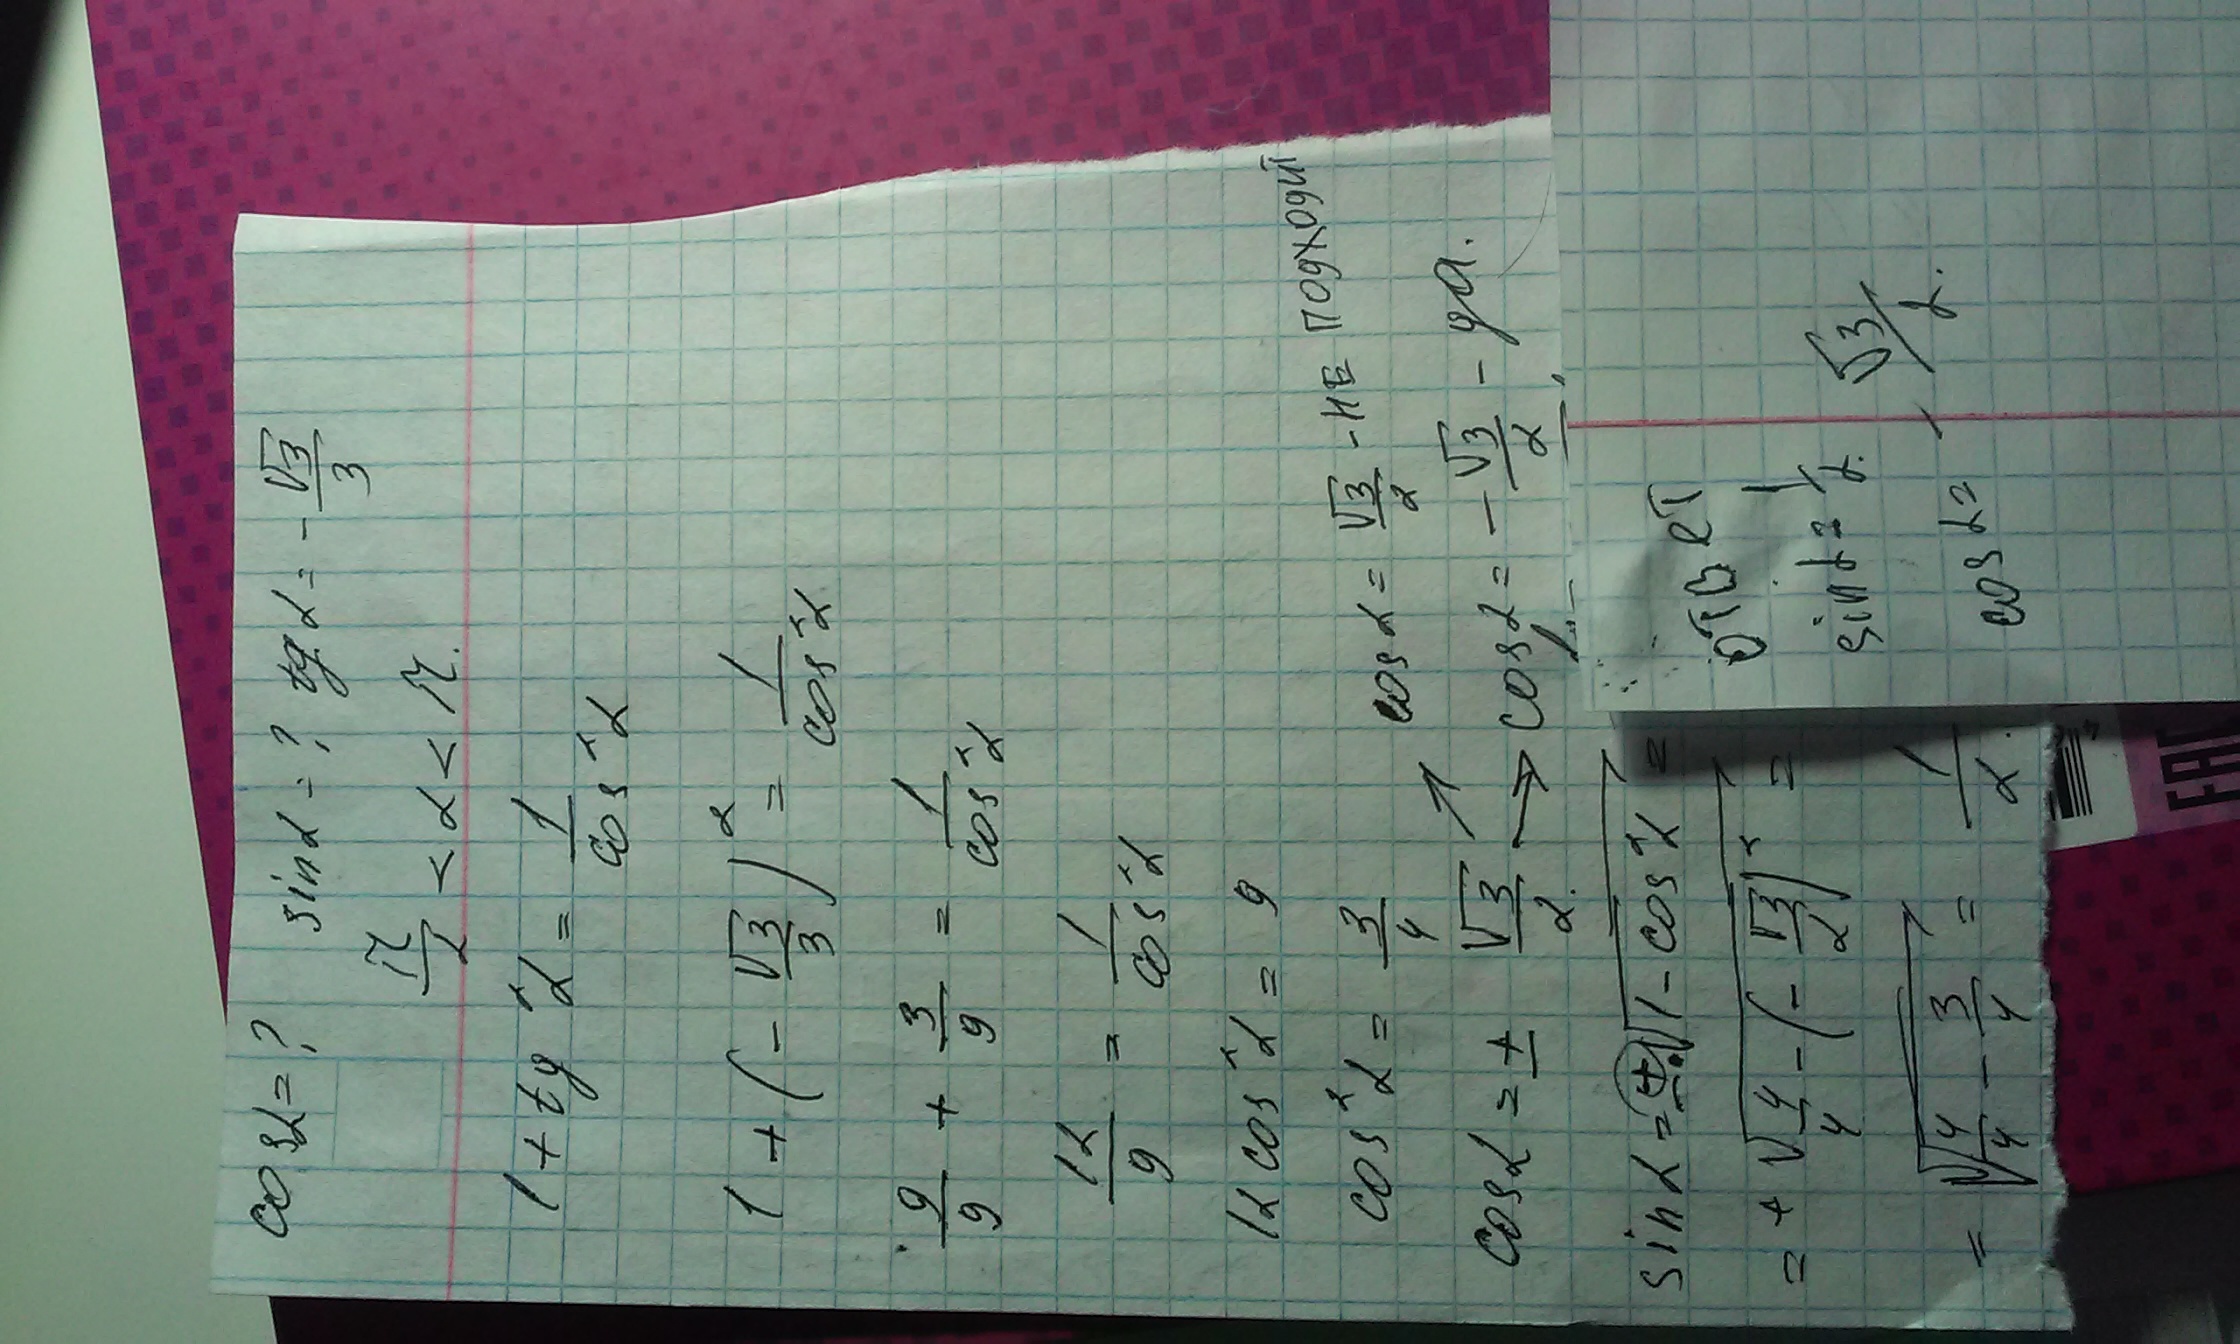 cosα = ? sinα = ? tgα = -√3/3
π/2 < α < π.
1 + tg²α = 1/cos²α
1 + (-√3/3)² = 1/cos²α
9/9 + 3/9 = 1/cos²α
12/9 = 1/cos²α
12 cos²α = 9
cos²α = 3/4
cosα = √3/2 - НЕ ПОДХОДИТ
cosα = ± √3/2. → cosα = -√3/2 - да.
sinα = ± √1 - cos²α =
= + √4/4 - (-√3/2)² =
= √4/4 - 3/4 = 1/2.
ОТВЕТ
sin α = 1/2.
cos α = - √3/2.
FAC